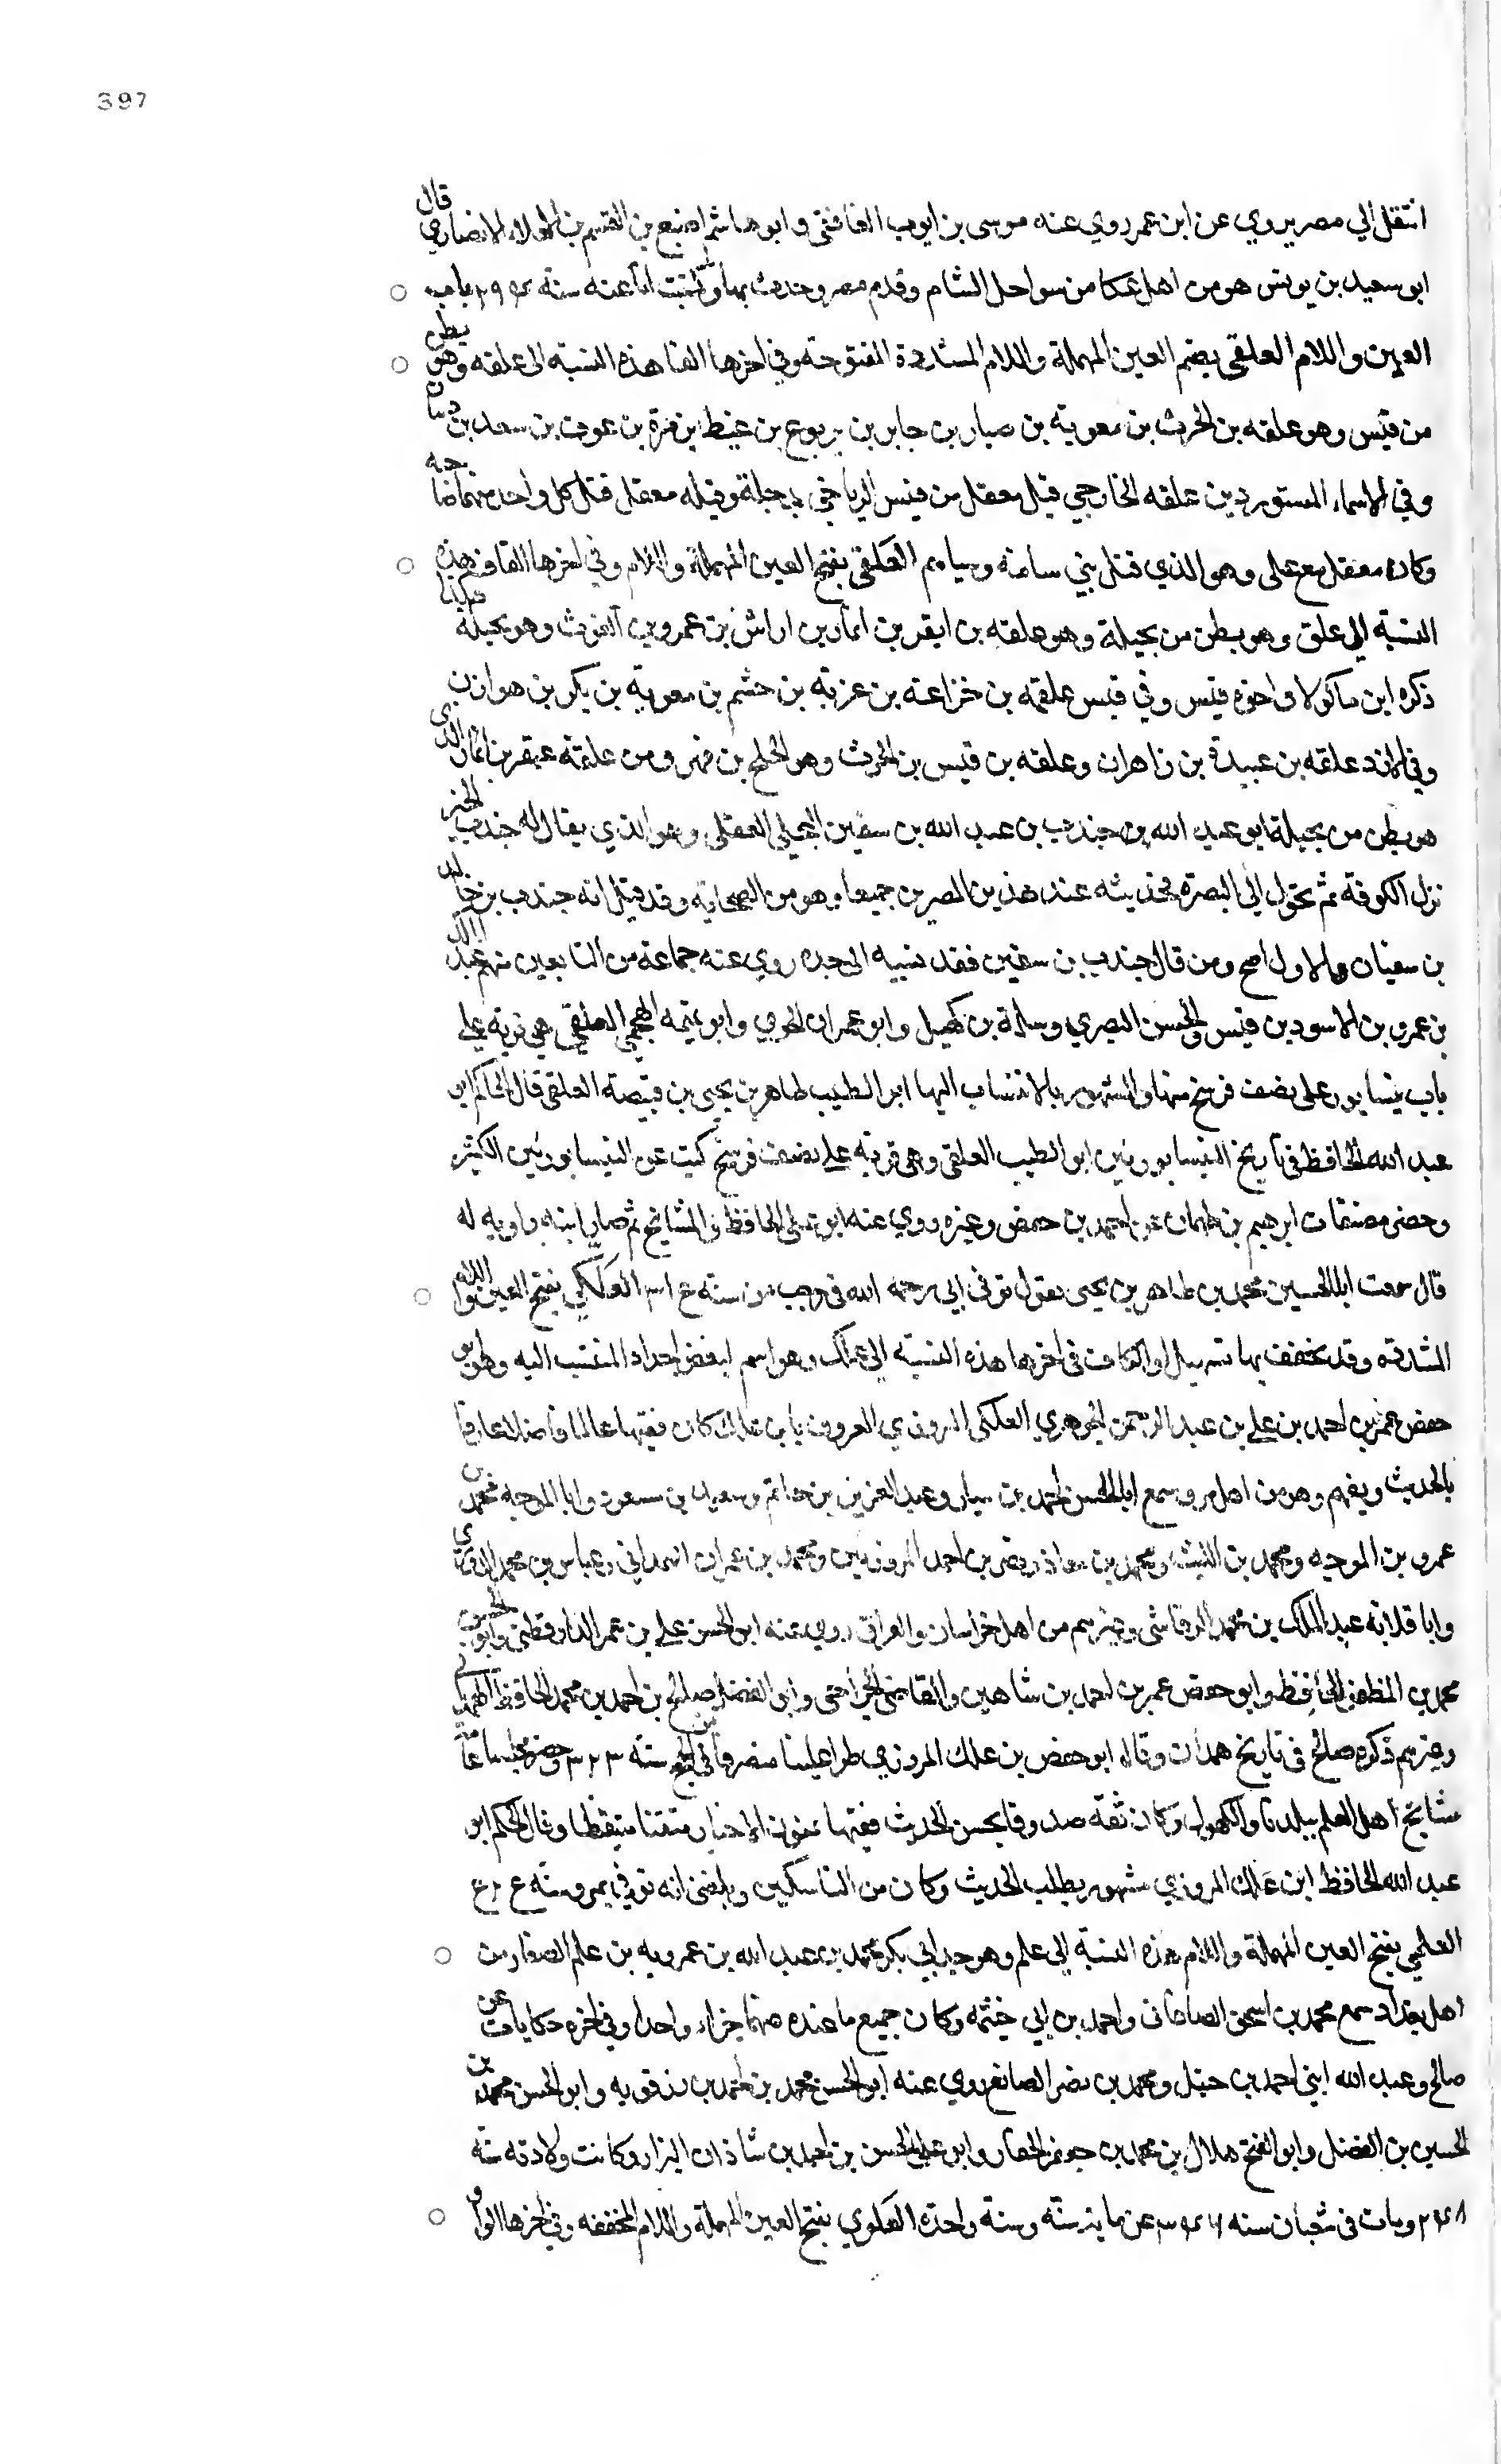 397
انتقل الي مصر يروي عن ابن عمر روي عنه موسى بن ايوب الغافقى و ابو هاشم اصبغ بن القسم بن العلاء الانصاري قال
ابو سعيد بن يونس هو من اهل عكا من سواحل الشام وقدم مصر وحدث بها وكتبت انا عنه سنة ٢٩٤ باب
العين واللام العلقى بضم العين المهملة واللام المشددة المفتوحة وفي اخرها القا هذه النسبة الى علقه وهو بطن
من قيس وهو علقه بن الحرث بن معوية بن صبار بن جابر بن يربوع بن غيظ بن مرة بن عوف بن سعد بن ذبيان
وفي الاسماء المستورد بن علقه الخارجي قتل معقل بن قيس الرياحي بدجلة وقتله معقل قتل كل واحد منهما صاحبه
وكان معقل مع على وهو الذي قتل بني سامه وسباهم العلقى بفتح العين المهملة واللام وفي اخرها القاف هذه
النسبة الي علق وهو بطن من بجيلة وهو علقه بن ابقر بن انمار بن اراش بن عمرو بن الغوث وهو بجيلة
ذكره ابن ماكولا فى اخوه قيس وفي قيس علقه بن خزاعه بن عزية بن جشم بن معوية بن بكر بن هوازن
وفي الازد علقه بن عبيدة بن زاهران وعلقه بن قيس بن الحرث وهو الخلج بن فهر ومن علقة عبقر بن انمار الذي
هو بطن من بجيلة ابو عبد الله بن جندب بن عبد الله بن سفين البجلي العقلى وهو الذي يقال له جندب الخير
نزل الكوفة ثم تحول الي البصرة فحديثه عند هذين المصرين جميعا وهو من الصحابة وقد قيل انه جندب بن خالد
بن سفيان والاول اصح ومن قال جندب بن سفين فقد نسبه الى جده روي عنه جماعة من التابعين منهم عبد
بن عمرو بن الاسود بن قيس والحسن البصري وسلمة بن كهيل و ابو عمران الجوني وابو تميمه الهجيمي العلقي هي قرية على
باب نيسابور على نصف فرسخ منها والمشهور بالانتساب اليها ابو الطيب طاهر بن يحيى بن قبيصة العلقى قال الحاكم ابو
عبد الله الحافظ في تاريخ النيسابوريين ابو الطيب العلقى وهى قرية على نصف فرسخ كتب عن النيسابوريين الكثير
وحضر مصنفات ابرهيم بن طهمان عن احمد بن حفص وغيره روي عنه ابو على الحافظ والمشايخ ثم صار ابنه راويه له
قال سمعت ابا الحسين محمد بن طاهر بن يحيى يقول توفى ابي رحمه الله في رجب من سنة ٣١٤ العلكي بفتح العين واللام
المشددة وقد يخفف بها تسهيلا والكاف فى اخرها هذه النسبة الي علك وهو اسم لبعض اجداد المنتسب اليه وهو ابو
حفص عمر بن احمد بن علي بن عبد الرحمن الجوهري العلكى المروزي المعروف بابن علك كان فقيها عالما فاضلا عارفا
بالحديث ويفهم وهو من اهل مرو سمع ابا الحسن احمد بن سيار وعبد العزيز بن حاتم وسعيد بن مسعود وابا الموجه محمد بن
عمرو بن الموجه ومحمد بن الليث ومحمد بن معاذ ونصر بن احمد المروزيين ومحمد بن عمران الهمداني وعباس بن محمد الدوري
وابا قلابه عبد الملك بن محمد الرقاشى وغيرهم من اهل خراسان والعراق روي عنه ابو الحسن علي بن عمر الدارقطني وابو الحسين
محمد بن المظفر الحافظ وابو حفص عمر بن احمد بن شاهين والقاضي الجراحى وابو الفضل صالح بن احمد بن محمد الحافظ الهمداني
وغيرهم ذكره صالح في تاريخ همدان وقال ابو حفص بن علك المروزي طرا علينا منصرفا من الحج سنة ٣٢٣ وحضر مجلسه عامة
مشايخ اهل العلم ببلدنا والكهول وكان ثقه صدوقا يحسن الحديث فقيها بفنون الاخبار متقنا متيقظا وقال الحكم ابو
عبد الله الحافظ ابن علك المروزي مشهور بطلب الحديث وكان من الناسكين وبلغنى انه توفي بمرو سنة
العلمي بفتح العين المهملة واللام هذه النسبة الي علم وهو جد ابي بكر محمد بن عبد الله بن عمرويه بن علم الصفار من
اهل بغداد سمع محمد بن اسحق الصاغاني واحمد بن ابي خيثمه وكان جميع ما عنده منهما جزاء واحدا وفي اخره حكايات عن
صالح وعبد الله ابني احمد بن حنبل ومحمد بن نصر الصائغ روي عنه ابو الحسن محمد بن احمد بن رزقويه وابو الحسن محمد بن
الحسين بن الفضل وابو الفتح هلال بن محمد بن جعفر الحفار وابو علي الحسن بن احمد بن شاذان البزار وكانت ولادته سنة
٢٤٨ ومات فى شعبان سنه ٣٤٩ عن ماية سنة وسنة واحدة العلوي بفتح العين المهملة واللام المخففه وفي اخرها الواو